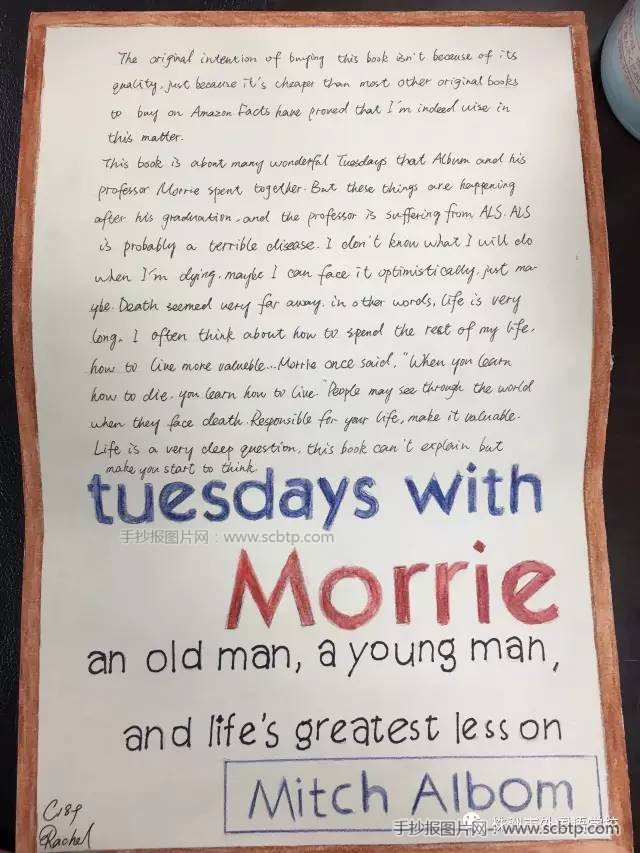 The original intention of buying this book isn't because of its
quality, just because it's cheaper than most other original books
to buy on Amazon. Facts have proved that I'm indeed wise in
this matter.
This book is about many wonderful Tuesdays that Album and his
professor Morrie spent together. But these things are happening
after his graduation, and the professor is suffering from ALS. ALS
is probably a terrible disease. I don't know what I will do
when I'm dying, maybe I can face it optimistically, just ma-
ybe. Death seemed very far away, in other words, life is very
long. I often think about how to spend the rest of my life,
how to live more valueble...Morrie once said, "When you learn
how to die, you learn how to live." People may see through the world
when they face death. Responsible for your life, make it valuable.
Life is a very deep question, this book can't explain but
make you start to think.
tuesdays with
手抄报图片网：www.scbtp.com
Morrie
an old man, a young man,
and life's greatest lesson
Mitch Albom
C189
Rachel
株洲市外国语学校
手抄报图片网：www.scbtp.com